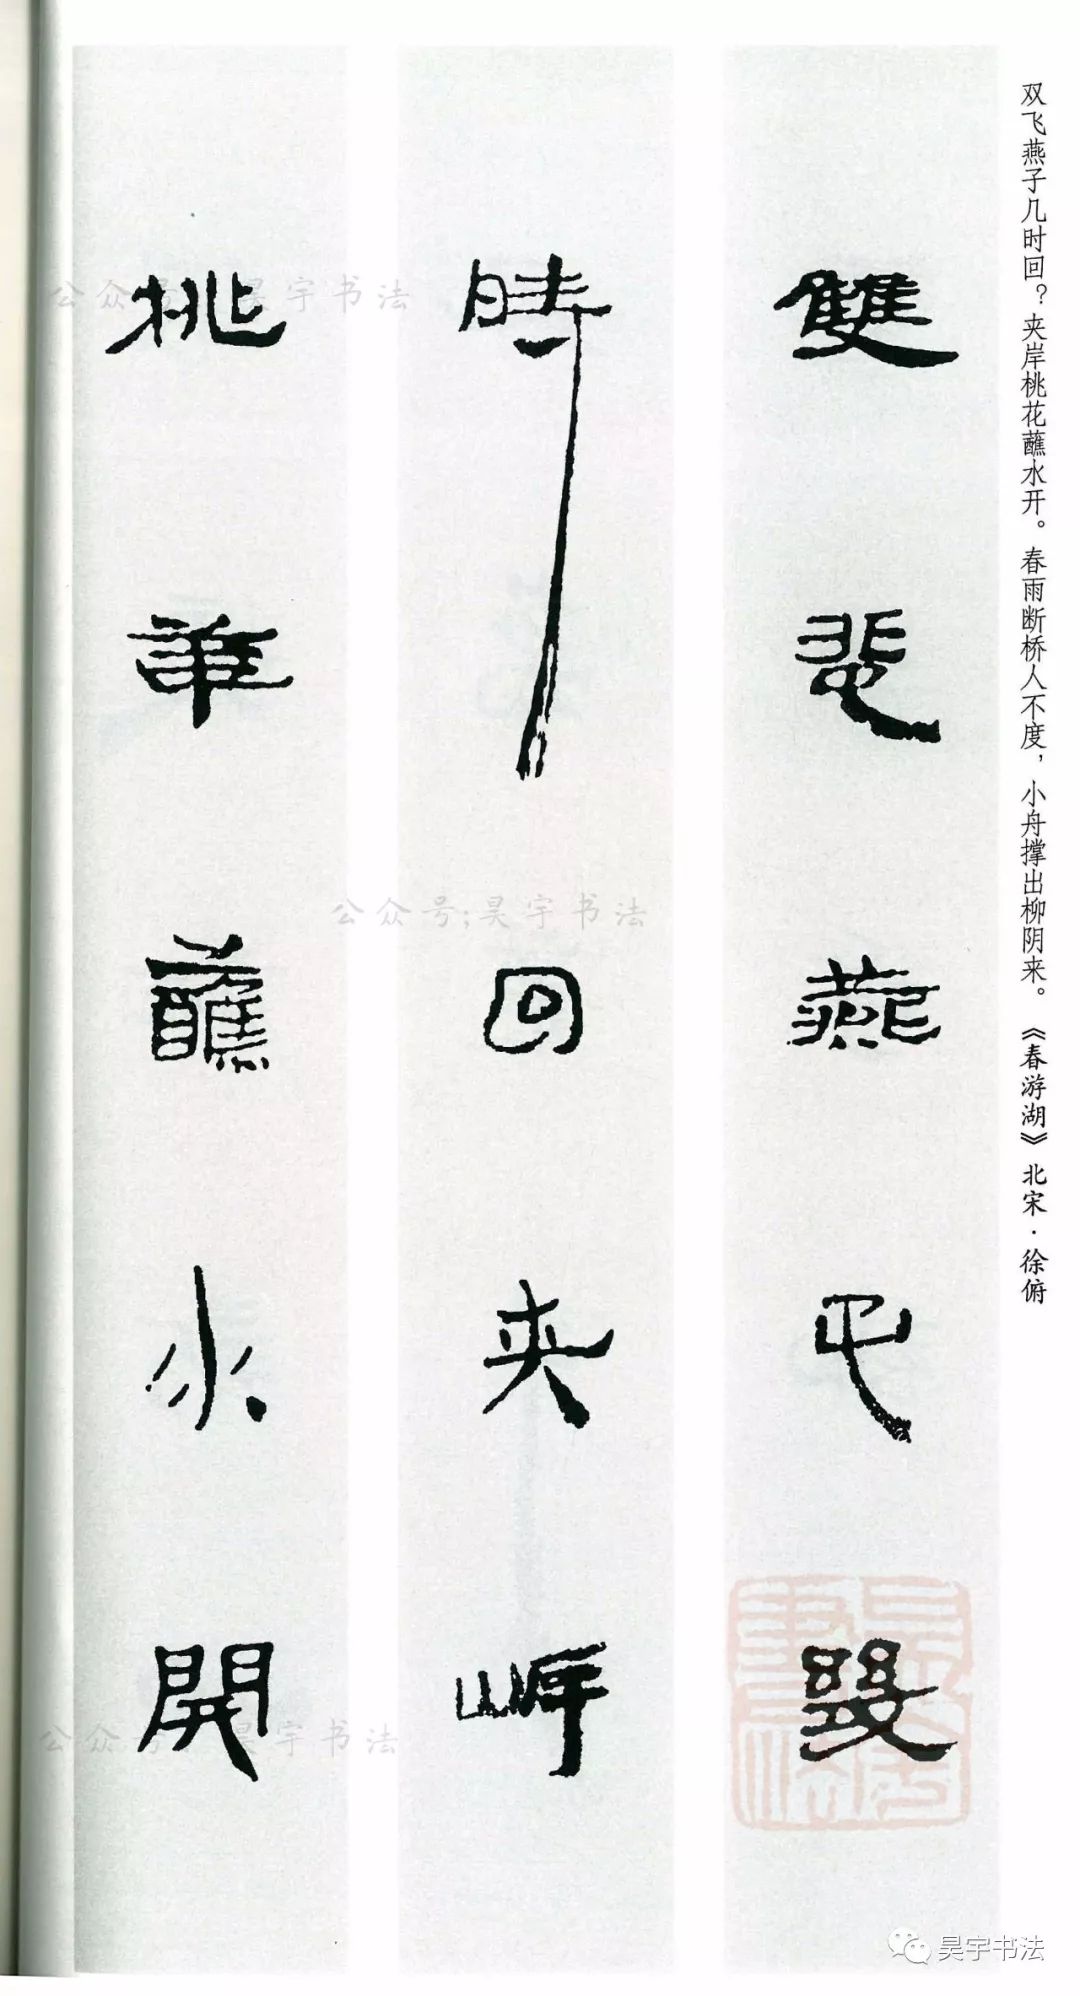 双飞燕子几时回？夹岸桃花蘸水开。春雨断桥人不度，小舟撑出柳阴来。《春游湖》北宋·徐俯
雙蜚燕子幾
時回夾岸
桃華蘸水開
公众号:昊宇书法
公众号:昊宇书法
公众号:昊宇书法
昊宇书法